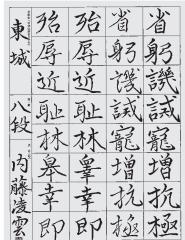 省躬譏誡寵増抗極
省躬譏誡寵増抗極
殆辱近耻林皋幸即
殆辱近耻林皋幸即
東城 八段 内藤凌雲